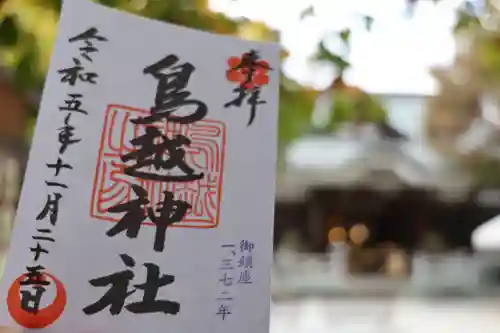 奉拝
鳥越神社
御鎮座
一、三七二年
令和五年十一月二十五日